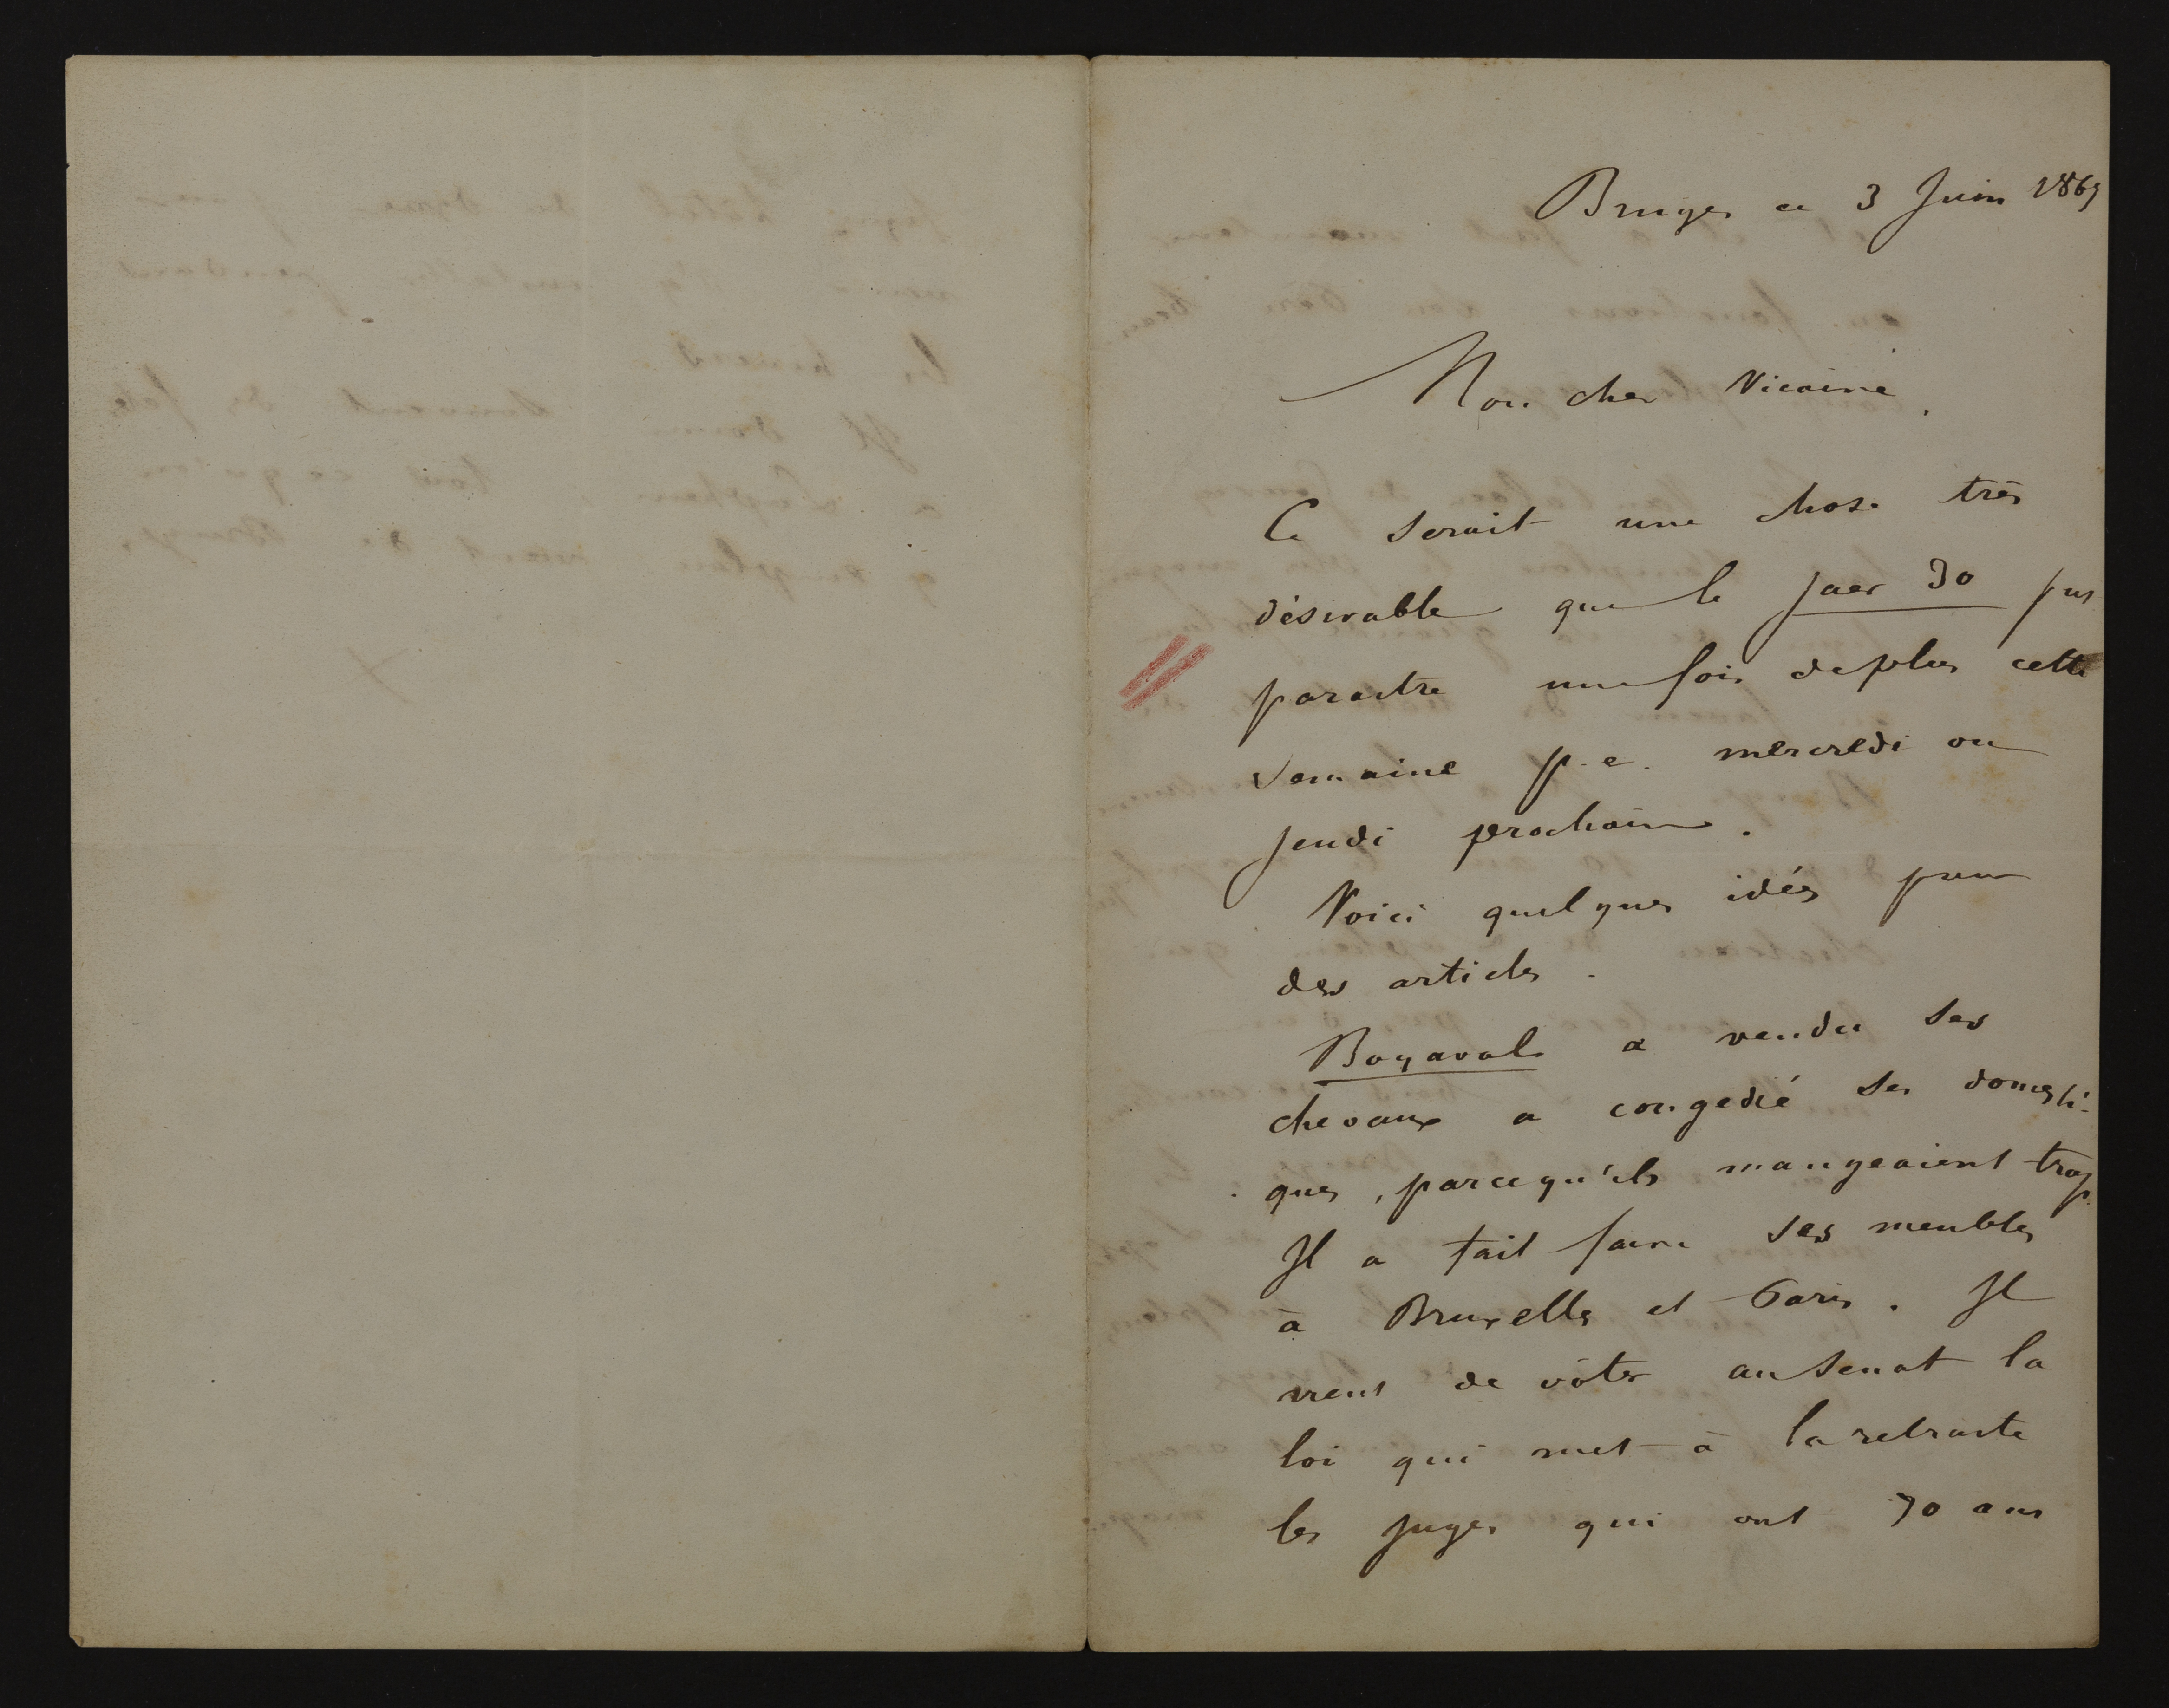 Bruges ce 3 Juin 1869
Mon cher Vicaire,
Ce serait une chose très
désirable que le Jaer 30 put
paraitre une fois de plus cette
semaine p. e. mercredi ou
jeudi prochain.
Voici quelques idées pour
des articles.
Boyaval a vendu ses
chevaux a congedié ses domesti-
ques, parcequ'ils mangeaient trop.
Il a fait faire ses meubles
à Bruxelles et Paris. Il
vient de vôter au Senat la
loi qui met à la retraite
les juges qui ont 70 ans